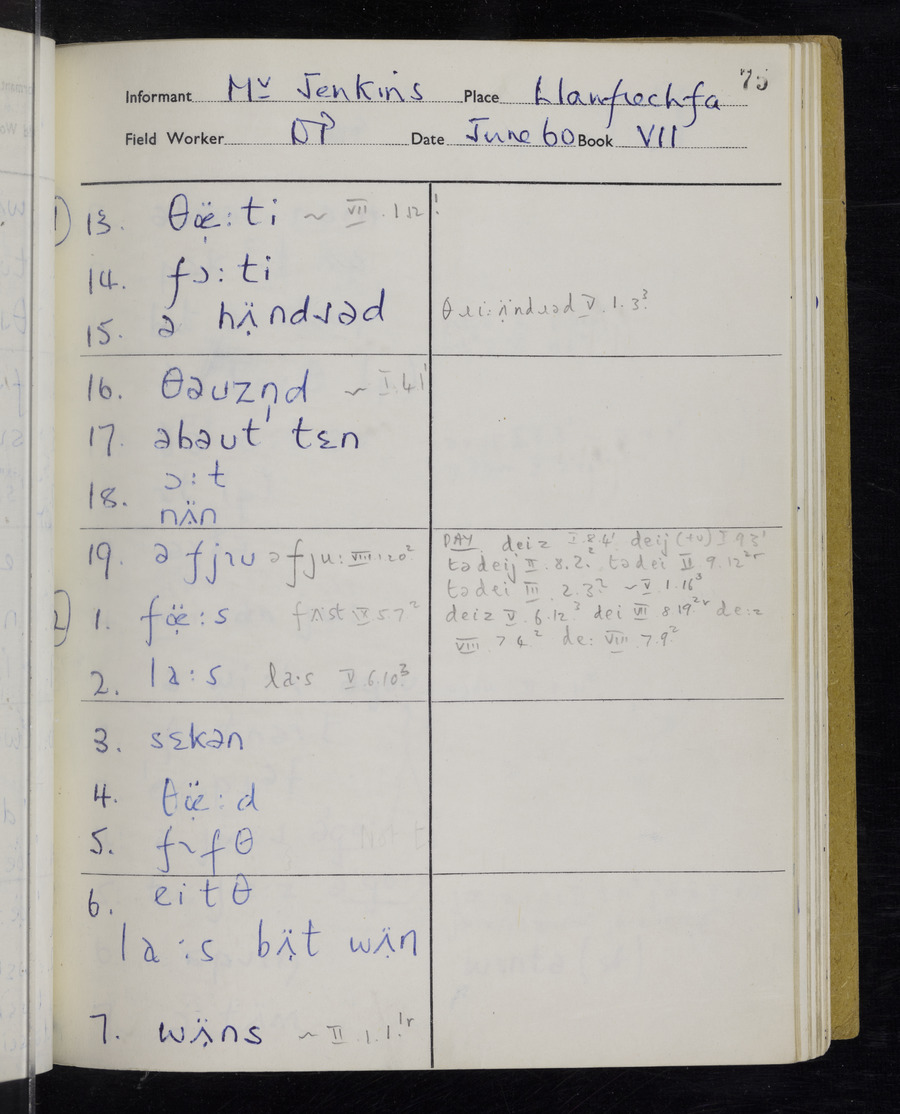 75
Informant Mr Jenkins Place Llanfrechfa
Field Worker DP Date June 60 Book VII
1 13. θœ̤̈:ti ~ VII .1.12
14. fɔ:ti
15. ə hʌ̤̈ndɹəd
θɹi:ʌ̈ndɹəd V.1.3³
16. θəuzn̩d ~ I.4.1
17. əbəut tɛn
18. ɔ:t
nʌ̈n
19. ə fjɪu əfju: VIII.1.20²
DAY deiz I.8.4¹ deij (+v) I 9.3¹
tədeij II.8.2² tədei II 9.12²ʳ
tədei III 2.3² ~ V 1.16³
2 1. fœ̤̈:s fʌst IV 5.7²
deiz V 6.12³ dei VII 8.19²ʳ de:z
VIII 7.4² de: VIII.7.9²
2. la:s la·s V.6.10³
3. sɛkən
4. θœ̈:d
5. fɪfθ
6. eitθ
la:s bʌ̤̈t wʌ̤̈n
7. wʌ̤̈ns ~ II 1.1¹ʳ